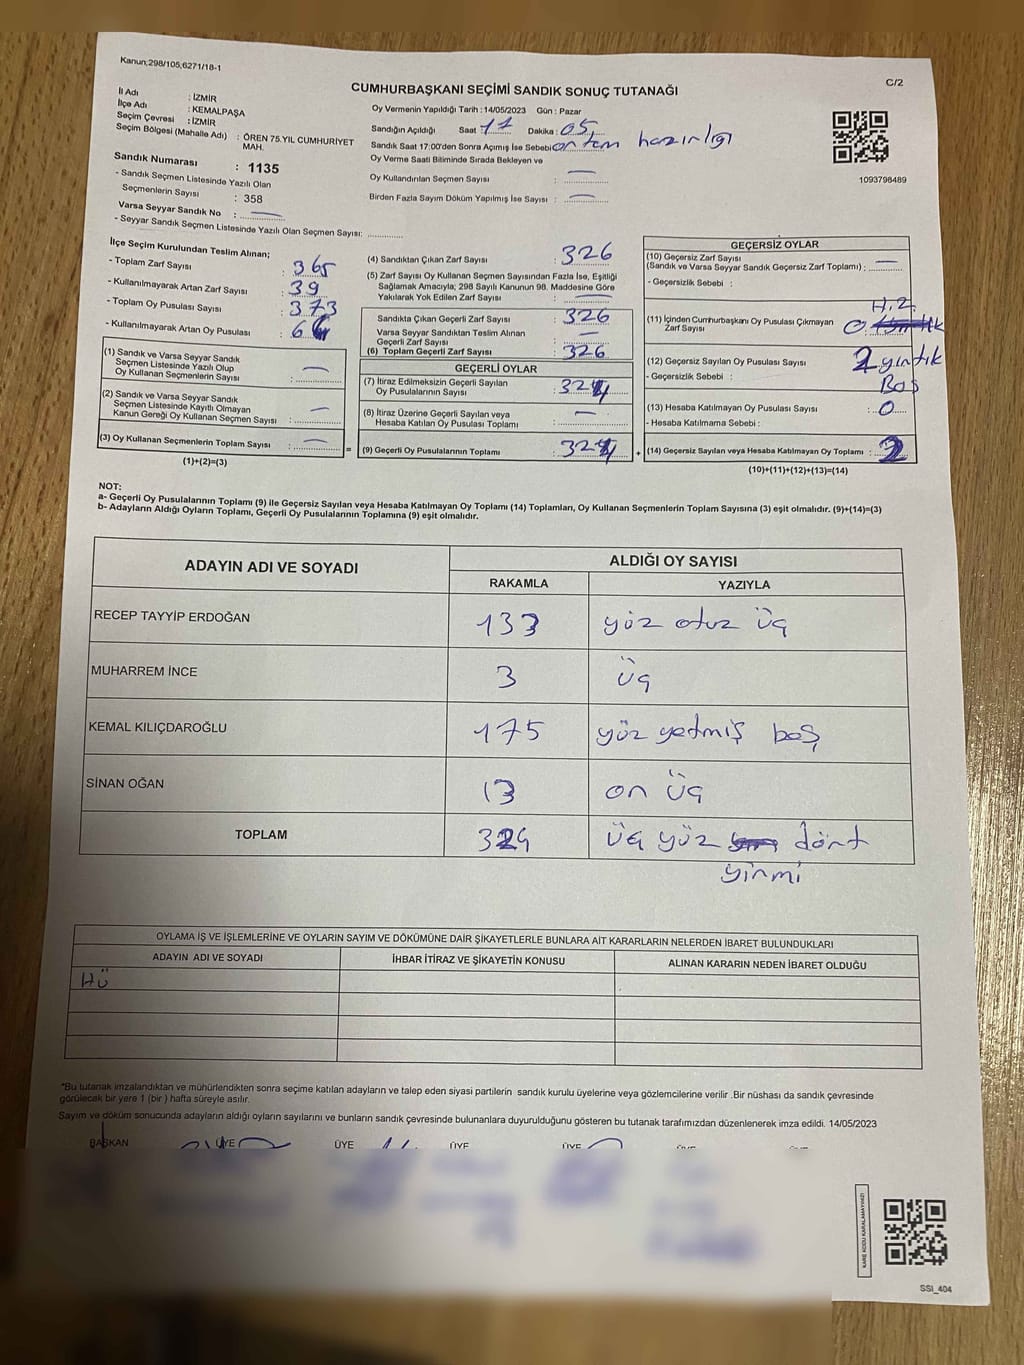 Kanun;298/105,6271/18-1
C/2
CUMHURBAŞKANI SEÇİMİ SANDIK SONUÇ TUTANAĞI
İl Adı : İZMİR
İlçe Adı : KEMALPAŞA
Seçim Çevresi : İZMİR
Seçim Bölgesi (Mahalle Adı) : ÖREN 75.YIL CUMHURİYET MAH.
Sandık Numarası : 1135
- Sandık Seçmen Listesinde Yazılı Olan
Seçmenlerin Sayısı : 358
Varsa Seyyar Sandık No :
- Seyyar Sandık Seçmen Listesinde Yazılı Olan Seçmen Sayısı:
Oy Vermenin Yapıldığı Tarih : 14/05/2023 Gün : Pazar
Sandığın Açıldığı Saat : 17 Dakika : 05
Sandık Saat 17:00'den Sonra Açımış İse Sebebi hazırlığı
Oy Verme Saati Bitiminde Sırada Bekleyen ve
Oy Kullandırılan Seçmen Sayısı : —
Birden Fazla Sayım Döküm Yapılmış İse Sayısı : —
1093798489
İlçe Seçim Kurulundan Teslim Alınan;
- Toplam Zarf Sayısı : 365
- Kullanılmayarak Artan Zarf Sayısı : 39
- Toplam Oy Pusulası Sayısı : 373
- Kullanılmayarak Artan Oy Pusulası :
(1) Sandık ve Varsa Seyyar Sandık
Seçmen Listesinde Yazılı Olup
Oy Kullanan Seçmenlerin Sayısı : —
(2) Sandık ve Varsa Seyyar Sandık
Seçmen Listesinde Kayıtlı Olmayan
Kanun Gereği Oy Kullanan Seçmen Sayısı : —
(3) Oy Kullanan Seçmenlerin Toplam Sayısı : —
(1)+(2)=(3)
(4) Sandıktan Çıkan Zarf Sayısı : 326
(5) Zarf Sayısı Oy Kullanan Seçmen Sayısından Fazla İse, Eşitliği
Sağlamak Amacıyla; 298 Sayılı Kanunun 98. Maddesine Göre
Yakılarak Yok Edilen Zarf Sayısı : —
Sandıkta Çıkan Geçerli Zarf Sayısı : 326
Varsa Seyyar Sandıktan Teslim Alınan
Geçerli Zarf Sayısı : —
(6) Toplam Geçerli Zarf Sayısı : 326
GEÇERLİ OYLAR
(7) İtiraz Edilmeksizin Geçerli Sayılan
Oy Pusulasının Sayısı : 324
(8) İtiraz Üzerine Geçerli Sayılan veya
Hesaba Katılan Oy Pusulası Toplamı : —
(9) Geçerli Oy Pusulalarının Toplamı : 324
GEÇERSİZ OYLAR
(10) Geçersiz Zarf Sayısı
(Sandık ve Varsa Seyyar Sandık Geçersiz Zarf Toplamı) : —
- Geçersizlik Sebebi :
(11) İçinden Cumhurbaşkanı Oy Pusulası Çıkmayan
Zarf Sayısı : 0
(12) Geçersiz Sayılan Oy Pusulası Sayısı : 2 yırtık
- Geçersizlik Sebebi : Boş
(13) Hesaba Katılmayan Oy Pusulası Sayısı : 0
- Hesaba Katılmama Sebebi :
(14) Geçersiz Sayılan veya Hesaba Katılmayan Oy Toplamı : 2
(10)+(11)+(12)+(13)=(14)
NOT:
a- Geçerli Oy Pusulalarının Toplamı (9) ile Geçersiz Sayılan veya Hesaba Katılmayan Oy Toplamı (14) Toplamları, Oy Kullanan Seçmenlerin Toplam Sayısına (3) eşit olmalıdır. (9)+(14)=(3)
b- Adayların Aldığı Oyların Toplamı, Geçerli Oy Pusulalarının Toplamına (9) eşit olmalıdır.
ADAYIN ADI VE SOYADI ALDIĞI OY SAYISI
RAKAMLA YAZIYLA
RECEP TAYYİP ERDOĞAN 133 yüz otuz üç
MUHARREM İNCE 3 üç
KEMAL KILIÇDAROĞLU 175 yüz yetmiş beş
SİNAN OĞAN 13 on üç
TOPLAM 324 üç yüz dört
yirmi
OYLAMA İŞ VE İŞLEMLERİNE VE OYLARIN SAYIM VE DÖKÜMÜNE DAİR ŞİKAYETLERLE BUNLARA AİT KARARLARIN NELERDEN İBARET BULUNDUKLARI
ADAYIN ADI VE SOYADI İHBAR İTİRAZ VE ŞİKAYETİN KONUSU ALINAN KARARIN NEDEN İBARET OLDUĞU
*Bu tutanak imzalandıktan ve mühürlendikten sonra seçime katılan adayların ve talep eden siyasi partilerin sandık kurulu üyelerine veya gözlemcilerine verilir .Bir nüshası da sandık çevresinde
görülecek bir yere 1 (bir ) hafta süreyle asılır.
Sayım ve döküm sonucunda adayların aldığı oyların sayılarını ve bunların sandık çevresinde bulunanlara duyurulduğunu gösteren bu tutanak tarafımızdan düzenlenerek imza edildi. 14/05/2023
BAŞKAN ÜYE ÜYE ÜYE ÜYE
KARE KODU KARALAMAYINIZ!
SSI_404